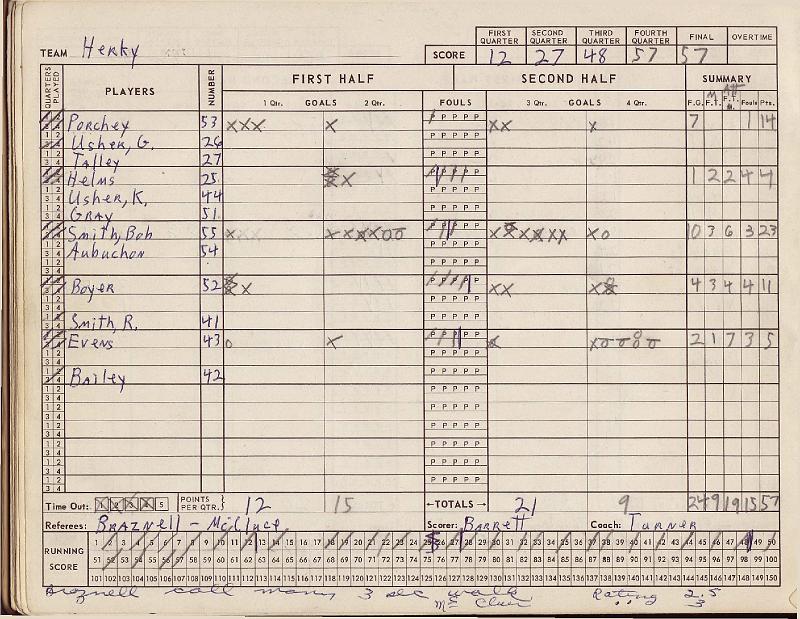 FIRST QUARTER SECOND QUARTER THIRD QUARTER FOURTH QUARTER FINAL OVERTIME
TEAM Henky SCORE 12 27 48 57 57
QUARTERS PLAYED PLAYERS NUMBER FIRST HALF SECOND HALF SUMMARY
1 Qtr. GOALS 2 Qtr. FOULS 3 Qtr. GOALS 4 Qtr. F.G. F.T. F.T. Fouls Pts.
Porchey 53 xxx x P P P P P xx x 7 1 14
Usher, G. 26
Talley 27
Helms 25 xx P P P P P 1 2 2 4 4
Usher, K. 44
GRAY 51
Smith, Bob 55 x P P P P P xo 10 3 6 3 23
Aubuchon 54
Boyer 52 P P P P P xx 4 3 4 4 11
Smith, R. 41
Evens 43 o x P P P P P x 2 1 7 3 5
Bailey 42
Time Out: 1 2 3 4 5 POINTS PER QTR. 12 15 ←TOTALS→ 21 9 24 9 19 15 57
Referees: BRAZNELL - McClure Scorer: BARRETT Coach: TURNER
1 2 3 4 5 6 7 8 9 10 11 12 13 14 15 16 17 18 19 20 21 22 23 24 25 26 27 28 29 30 31 32 33 34 35 36 37 38 39 40 41 42 43 44 45 46 47 48 49 50
RUNNING SCORE 51 52 53 54 55 56 57 58 59 60 61 62 63 64 65 66 67 68 69 70 71 72 73 74 75 76 77 78 79 80 81 82 83 84 85 86 87 88 89 90 91 92 93 94 95 96 97 98 99 100
101 102 103 104 105 106 107 108 109 110 111 112 113 114 115 116 117 118 119 120 121 122 123 124 125 126 127 128 129 130 131 132 133 134 135 136 137 138 139 140 141 142 143 144 145 146 147 148 149 150
Braznell call many 3 sec walk Rating 2.5
Mc Clur " 3